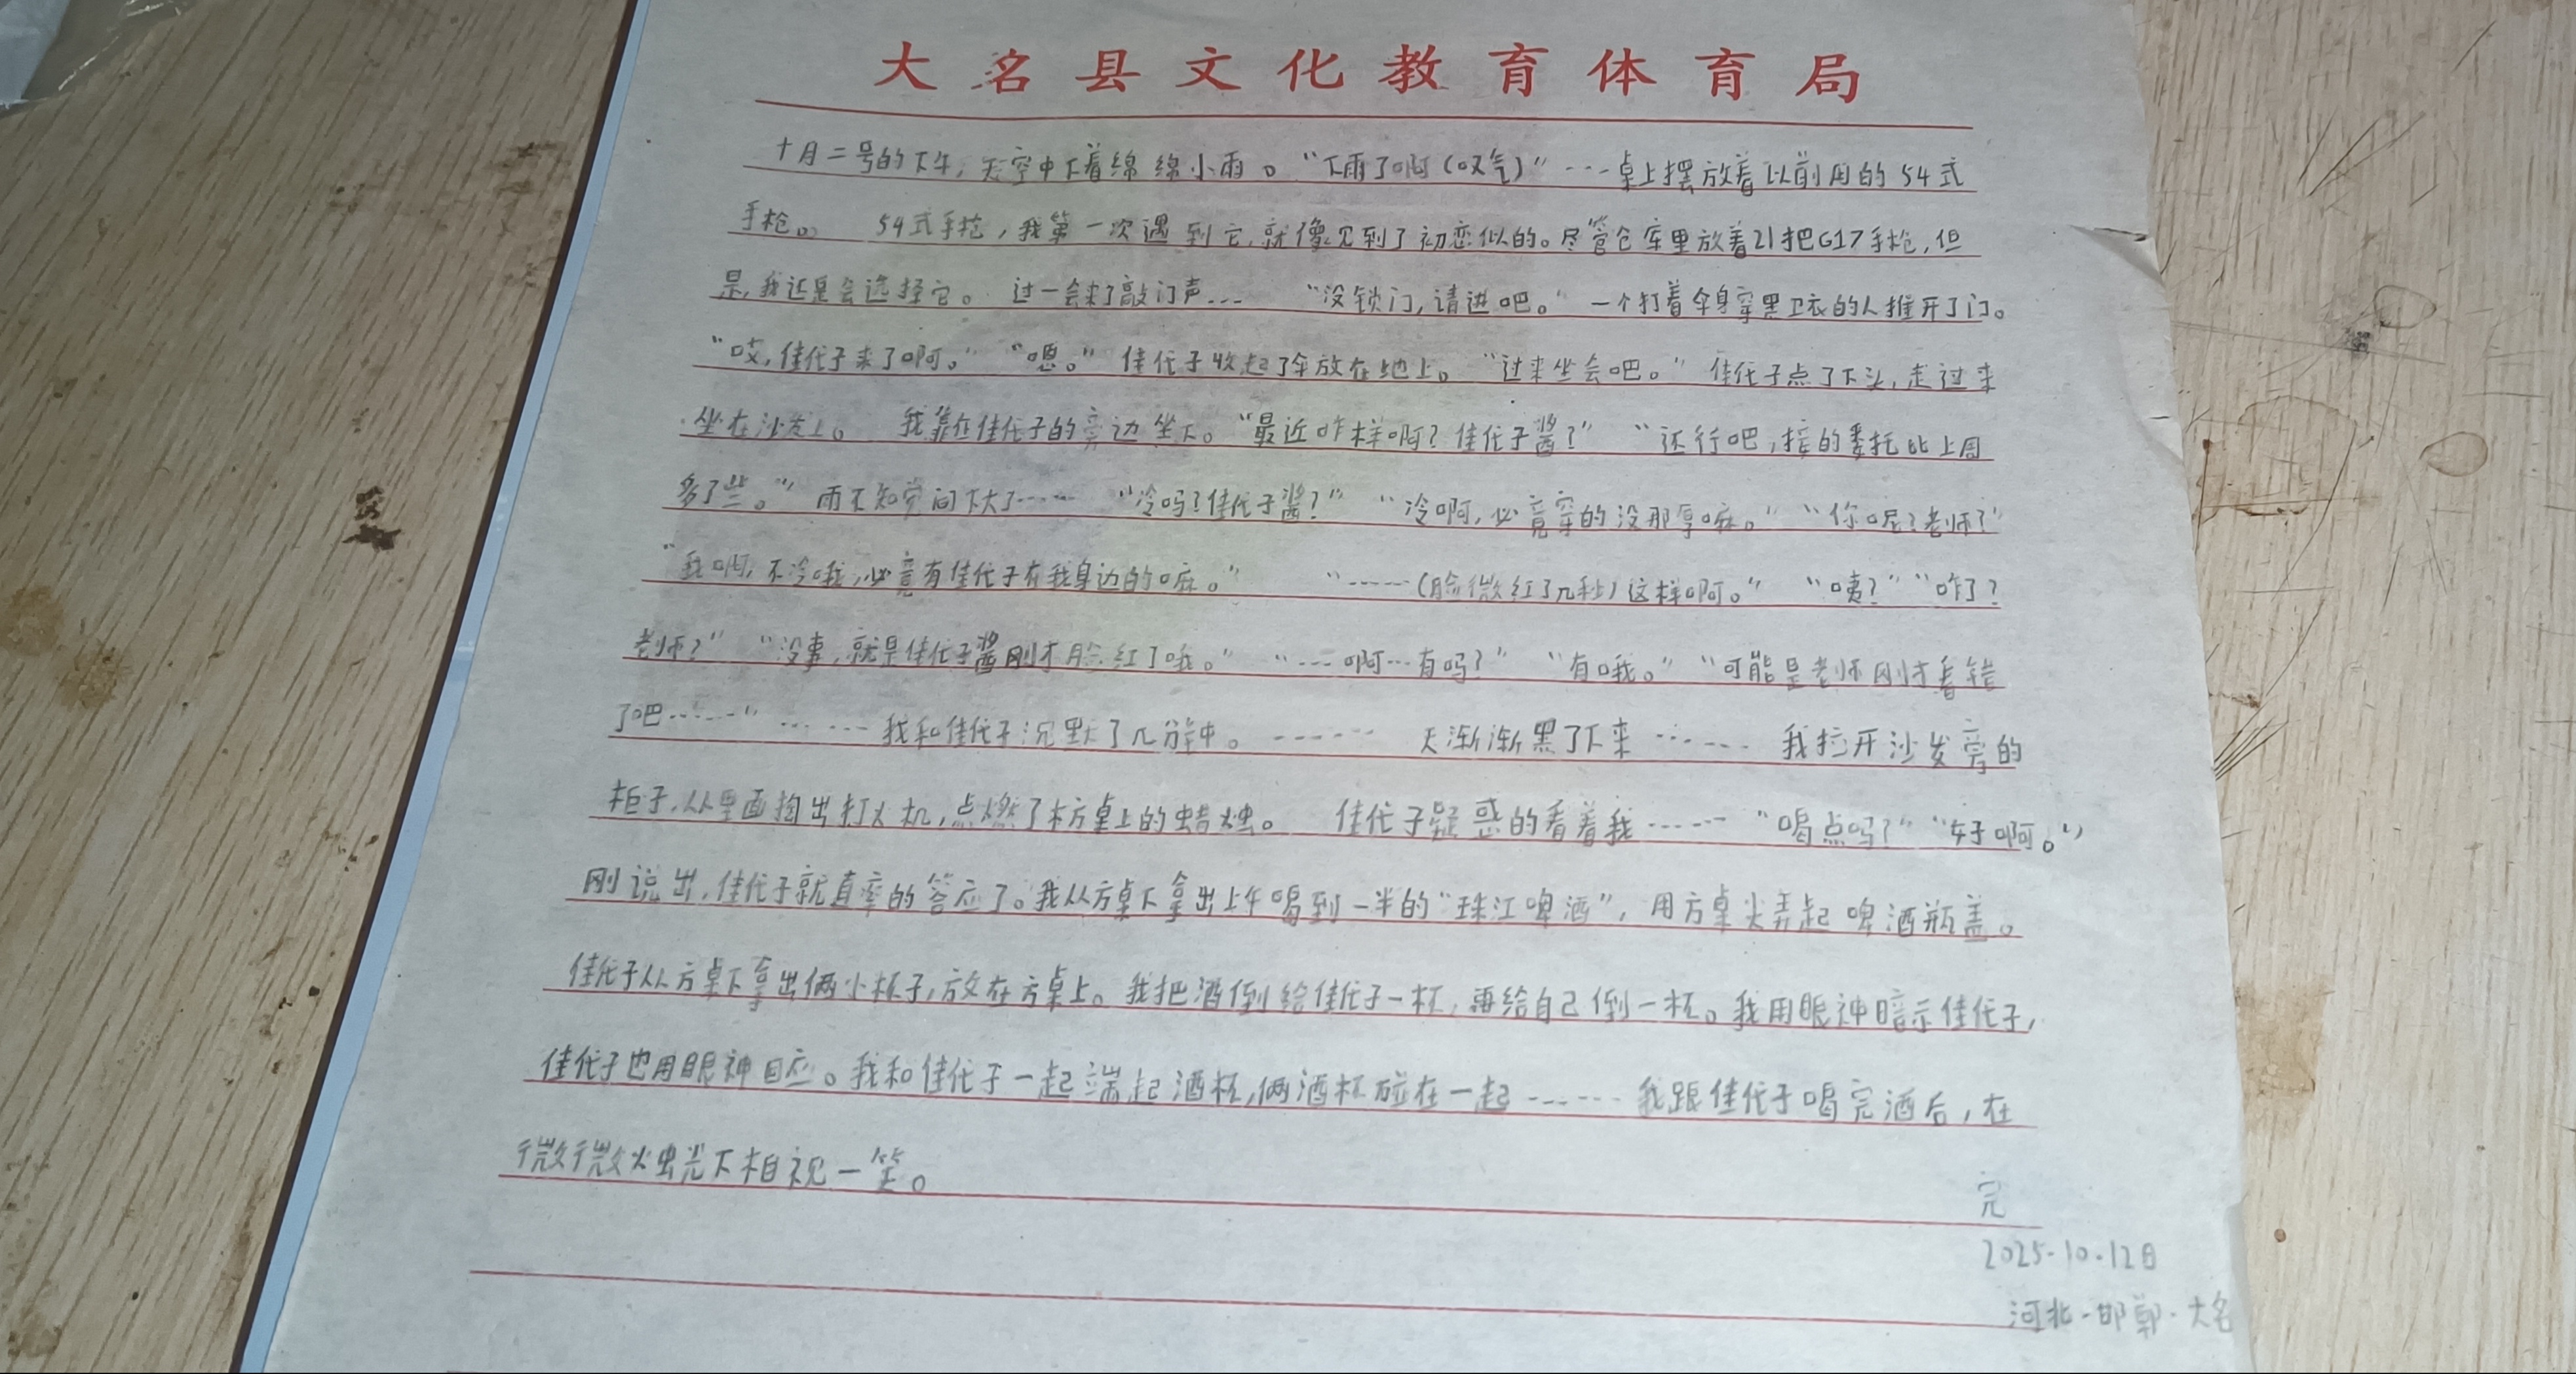 大名县文化教育体育局
十月二号的下午，天空中下着绵绵小雨。“下雨了啊（叹气）”……桌上摆放着以前用的54式
手枪。 54式手枪，我第一次遇到它，就像见到了初恋似的。尽管仓库里放着21把G17手枪，但
是，我还是会选择它。 过一会来了敲门声…… “没锁门，请进吧。” 一个打着伞身穿黑卫衣的人推开了门。
“哎，佳代子来了啊。” “嗯。” 佳代子收起了伞放在地上。 “过来坐会吧。” 佳代子点了下头，走过来
坐在沙发上。 我靠在佳代子的旁边坐下。“最近咋样啊？佳代子酱？” “还行吧，接的委托比上周
多了些。” 雨不知觉间下大了…… “冷吗？佳代子酱？” “冷啊，必竟穿的没那厚嘛。” “你呢？老师？”
“我啊，不冷哦，必竟有佳代子在我身边的嘛。” “……（脸微红了几秒）这样啊。” “咦？” “咋了？
老师？” “没事，就是佳代子酱刚才脸红了哦。” “……啊…有吗？” “有哦。” “可能是老师刚才看错
了吧……” ……我和佳代子沉默了几分钟。…… 天渐渐黑了下来…… 我拉开沙发旁的
柜子，从里面掏出打火机，点燃了木方桌上的蜡烛。 佳代子疑惑的看着我…… “喝点吗？” “好啊。”
刚说出，佳代子就直率的答应了。我从方桌下拿出上午喝到一半的“珠江啤酒”，用方桌尖弄起啤酒瓶盖。
佳代子从方桌下拿出俩小杯子，放在方桌上。我把酒倒给佳代子一杯，再给自己倒一杯。我用眼神暗示佳代子，
佳代子也用眼神回应。我和佳代子一起端起酒杯，俩酒杯碰在一起…… 我跟佳代子喝完酒后，在
微微烛光下相视一笑。
完
2025.10.12日
河北·邯郸·大名